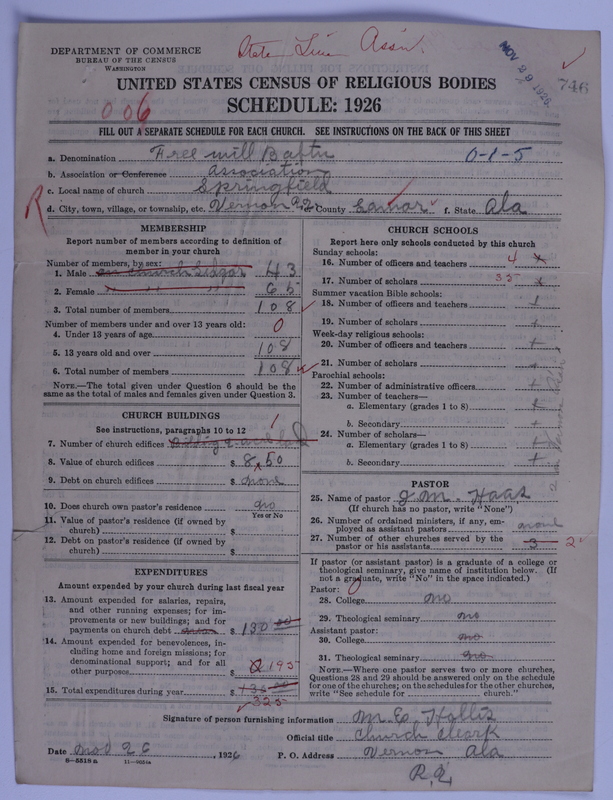 DEPARTMENT OF COMMERCE
BUREAU OF THE CENSUS
WASHINGTON
State Line Assn.
NOV 29 1926
746
UNITED STATES CENSUS OF RELIGIOUS BODIES
SCHEDULE: 1926
006
FILL OUT A SEPARATE SCHEDULE FOR EACH CHURCH. SEE INSTRUCTIONS ON THE BACK OF THIS SHEET
a. Denomination Free will Baptis 0-1-5
b. Association or Conference Association
c. Local name of church Springfield
R
d. City, town, village, or township, etc. Vernon R2 or County Lamar f. State Ala
MEMBERSHIP
Report number of members according to definition of
member in your church
Number of members, by sex:
1. Male 43
2. Female 65
3. Total number of members 108
Number of members under and over 13 years old:
4. Under 13 years of age 0
5. 13 years old and over 108
6. Total number of members 108
NOTE.—The total given under Question 6 should be
the same as the total of males and females given under Question 3.
CHURCH BUILDINGS
See instructions, paragraphs 10 to 12
7. Number of church edifices 1
8. Value of church edifices $ 850
9. Debt on church edifices $ none
10. Does church own pastor's residence? no
Yes or No
11. Value of pastor's residence (if owned by
church) $
12. Debt on pastor's residence (if owned by
church) $
EXPENDITURES
Amount expended by your church during last fiscal year
13. Amount expended for salaries, repairs,
and other running expenses; for im-
provements or new buildings; and for
payments on church debt $ 130 00
14. Amount expended for benevolences, in-
cluding home and foreign missions; for
denominational support; and for all
other purposes $ 195
15. Total expenditures during year $
325
CHURCH SCHOOLS
Report here only schools conducted by this church
Sunday schools:
16. Number of officers and teachers 4
17. Number of scholars 35
Summer vacation Bible schools:
18. Number of officers and teachers
19. Number of scholars
Week-day religious schools:
20. Number of officers and teachers
21. Number of scholars
Parochial schools:
22. Number of administrative officers
23. Number of teachers—
a. Elementary (grades 1 to 8)
b. Secondary
24. Number of scholars—
a. Elementary (grades 1 to 8)
b. Secondary
PASTOR
25. Name of pastor J. M. Haas
(If church has no pastor, write "None")
26. Number of ordained ministers, if any, em-
ployed as assistant pastors none
27. Number of other churches served by the
pastor or his assistants 3 2
If pastor (or assistant pastor) is a graduate of a college or
theological seminary, give name of institution below. (If
not a graduate, write "No" in the space indicated.)
Pastor: 0
28. College no
29. Theological seminary no
Assistant pastor:
30. College no
31. Theological seminary no
NOTE.—Where one pastor serves two or more churches,
Questions 28 and 29 should be answered only on the schedule
for one of the churches; on the schedules for the other churches,
write "See schedule for church."
Signature of person furnishing information M. E. Hollis
Official title Church Clerk
Date Nov 26, 1926
P. O. Address Vernon Ala
R. 2
8-5518 a 11-9054a